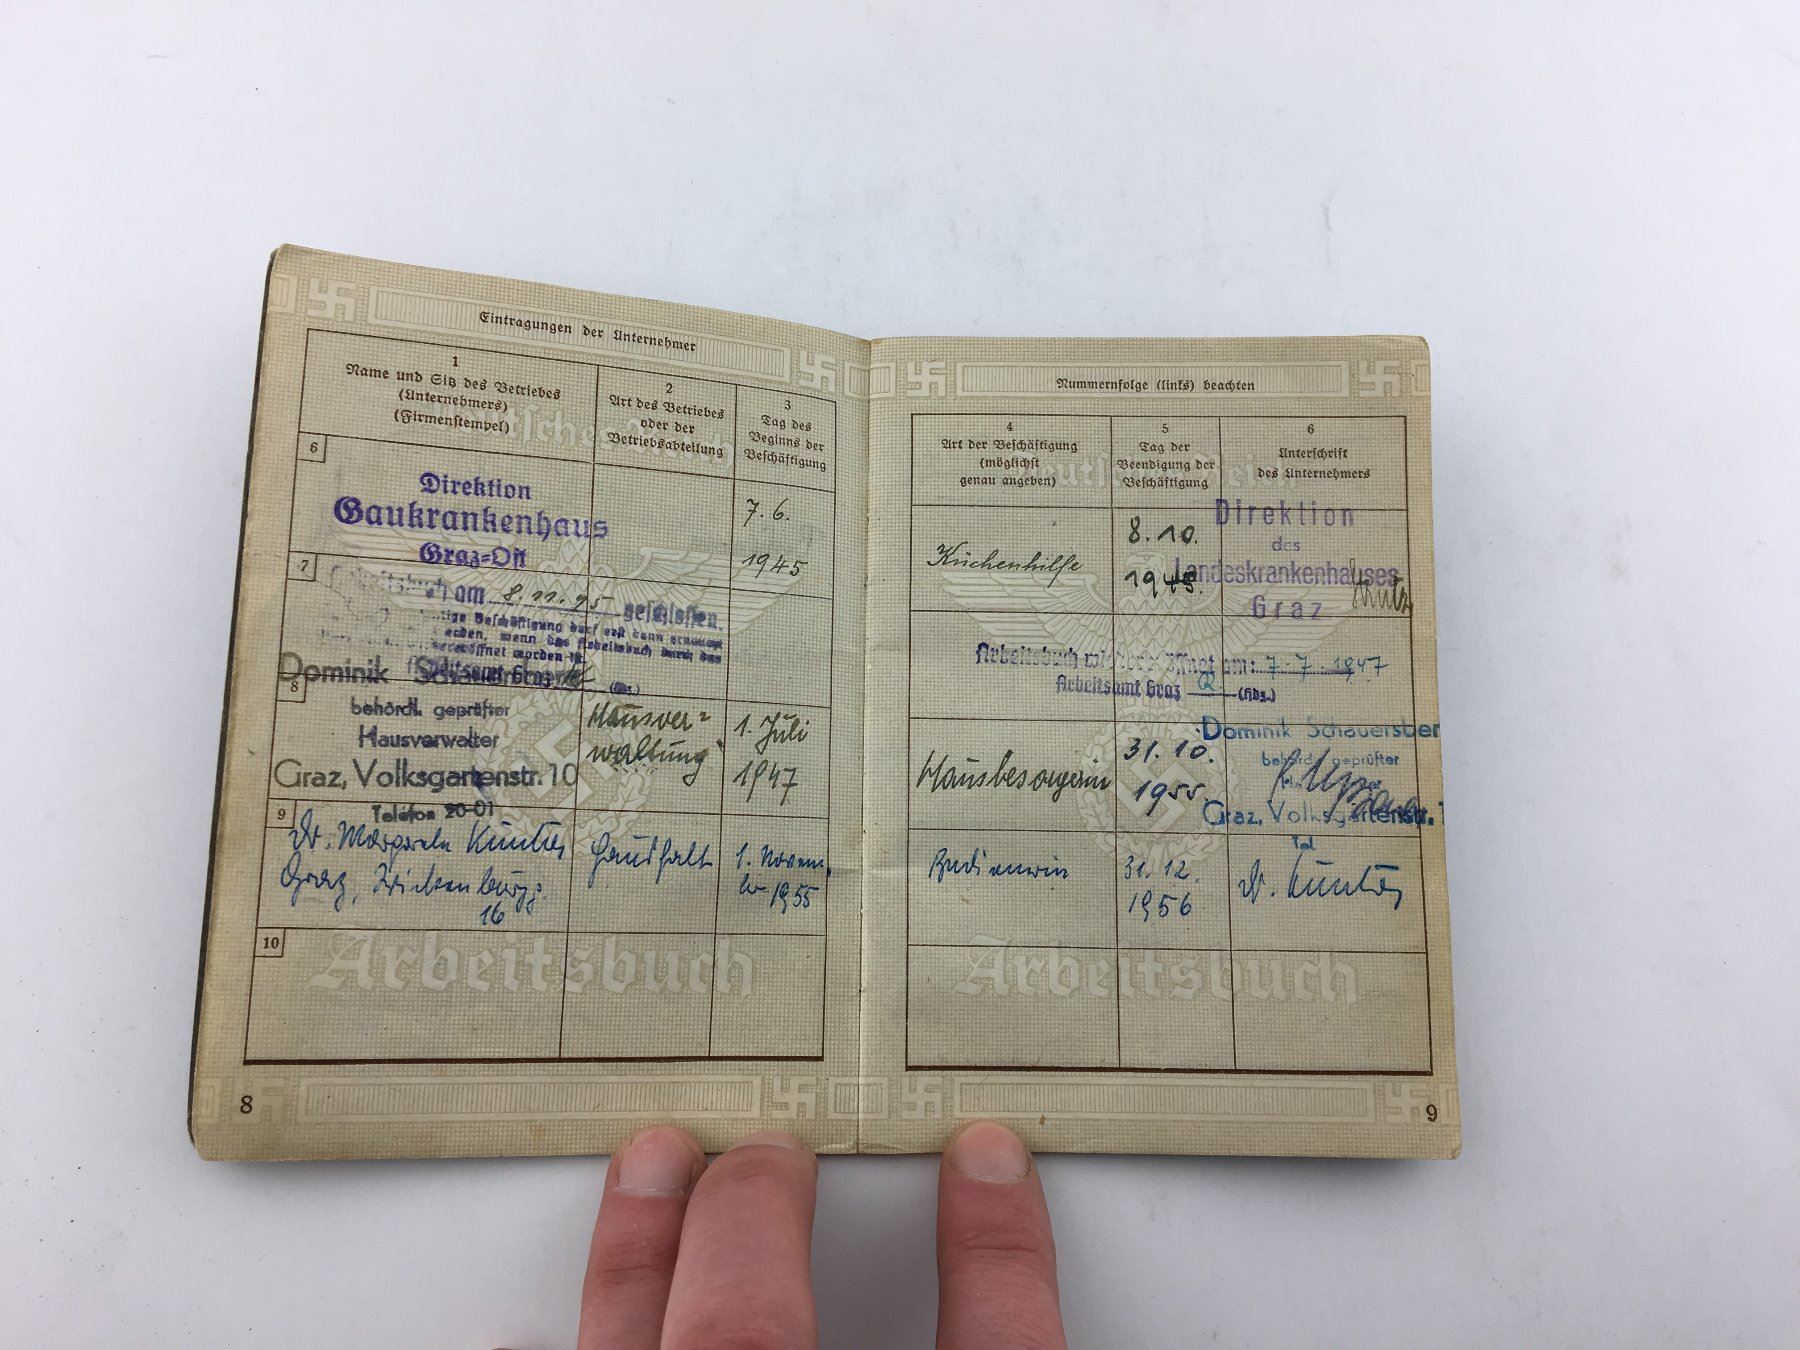 Eintragungen der Unternehmer
1
Name und Sitz des Betriebes
(Unternehmers)
(Firmenstempel)
2
Art des Betriebes
oder der
Betriebsabteilung
3
Tag des
Beginns der
Beschäftigung
6
Direktion
Gaukrankenhaus
Graz-Ost
7. 6.
1945
7
Arbeitsbuch am 8.11.45 geschlossen.
Beschäftigung darf erst dann
werden, wenn das Arbeitsbuch durch das
worden ist
Arbeitsamt Graz
8
Dominik
behördl. geprüfter
Hausverwalter
Graz, Volksgartenstr. 10
Telefon 20-01
Hausver=
waltung
1. Juli
1947
9
Dr.
Graz,
16
Haushalt
1. Novem.
ber 1955
10
Deutsches Reich
Arbeitsbuch
8
Nummernfolge (links) beachten
4
Art der Beschäftigung
(möglichst
genau angeben)
5
Tag der
Beendigung der
Beschäftigung
6
Unterschrift
des Unternehmers
Küchenhilfe
8. 10.
1945.
Direktion
des
Landeskrankenhauses
Graz
Arbeitsbuch wieder eröffnet am: 7. 7. 1947
Arbeitsamt Graz (Hdz.)
Hausbesorgerin
31. 10.
1955.
Dominik Schauersber
behördl. geprüfter
Graz, Volksgartenstr. 1
Tel
Bedienerin
31. 12.
1956
Dr.
Deutsches Reich
Arbeitsbuch
9